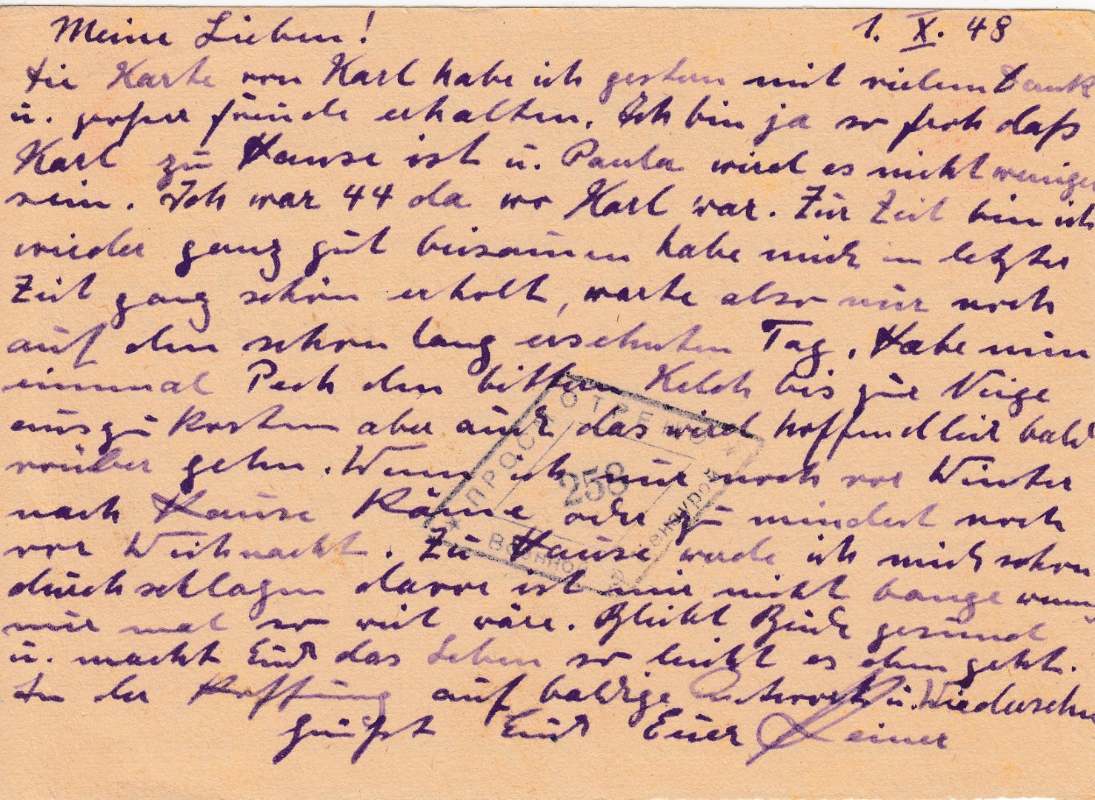 Meine Lieben! 1. X. 48
die Karte von Karl habe ich gestern mit vielem Dank
u. großer Freude erhalten. Ich bin ja so froh daß
Karl zu Hause ist u. Paula wird es nicht weniger
sein. Ich war 44 da wo Karl war. Zur Zeit bin ich
wieder ganz gut beisamen habe mich in letzter
Zeit ganz schön erholt, warte also nur noch
auf den schon lang ersehnten Tag. Habe nun
einmal Pech den bittern Kelch bis zur Neige
auszu kosten aber auch das wird hoffendlich bald
vorüber gehn. Wenn ich nur noch vor Winter
nach Hause käme oder zu mindest noch
vor Weihnacht. Zu Hause werde ich mich schon
durchschlagen davor ist mir nicht bange wenns
nur mal so weit wäre. Bleibt Euch gesund
u. macht Euch das Leben so leicht es eben geht.
In der Hoffnung auf baldige Antwort u. Wiedersehn
grüßt Euch Euer Heiner
ПРОСМОТРЕНО
258
Военной
цензурой